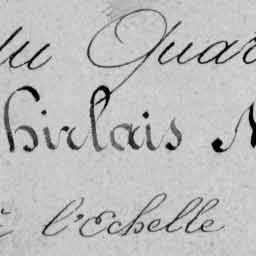 du Quar
hirlais N
l'Echelle